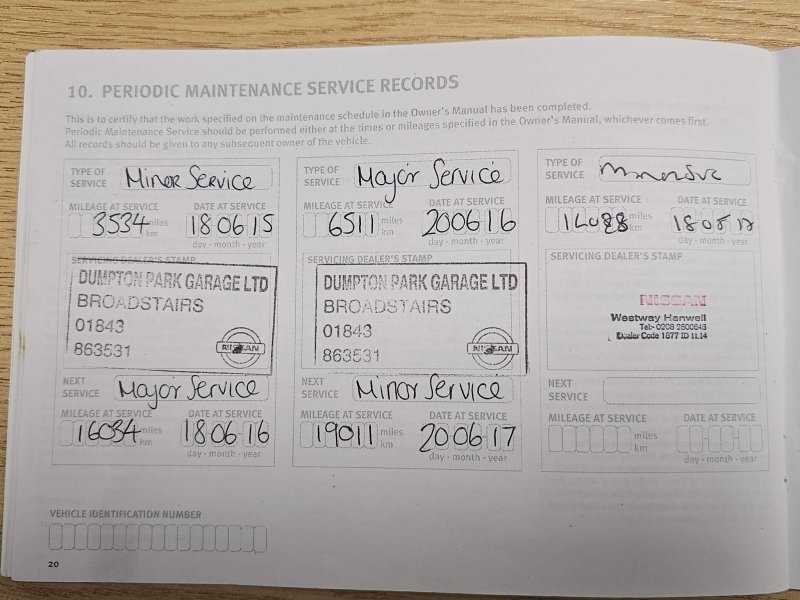 10. PERIODIC MAINTENANCE SERVICE RECORDS
This is to certify that the work specified on the maintenance schedule in the Owner's Manual has been completed.
Periodic Maintenance Service should be performed either at the times or mileages specified in the Owner's Manual, whichever comes first.
All records should be given to any subsequent owner of the vehicle.
TYPE OF SERVICE Minor Service
MILEAGE AT SERVICE DATE AT SERVICE
3534 miles km 18 06 15
day - month - year
SERVICING DEALER'S STAMP
DUMPTON PARK GARAGE LTD
BROADSTAIRS
01843
863531
NISSAN
NEXT SERVICE Major Service
MILEAGE AT SERVICE DATE AT SERVICE
16034 miles km 18 06 16
day - month - year
TYPE OF SERVICE Major Service
MILEAGE AT SERVICE DATE AT SERVICE
6511 miles km 20 06 16
day - month - year
SERVICING DEALER'S STAMP
DUMPTON PARK GARAGE LTD
BROADSTAIRS
01843
863531
NISSAN
NEXT SERVICE Minor Service
MILEAGE AT SERVICE DATE AT SERVICE
19011 miles km 20 06 17
day - month - year
TYPE OF SERVICE
MILEAGE AT SERVICE DATE AT SERVICE
miles km
day - month - year
SERVICING DEALER'S STAMP
NISSAN
Westway Hanwell
Tel:- 0208 2800643
Dealer Code 1877 ID 11.14
NEXT SERVICE
MILEAGE AT SERVICE DATE AT SERVICE
miles km
day - month - year
VEHICLE IDENTIFICATION NUMBER
20